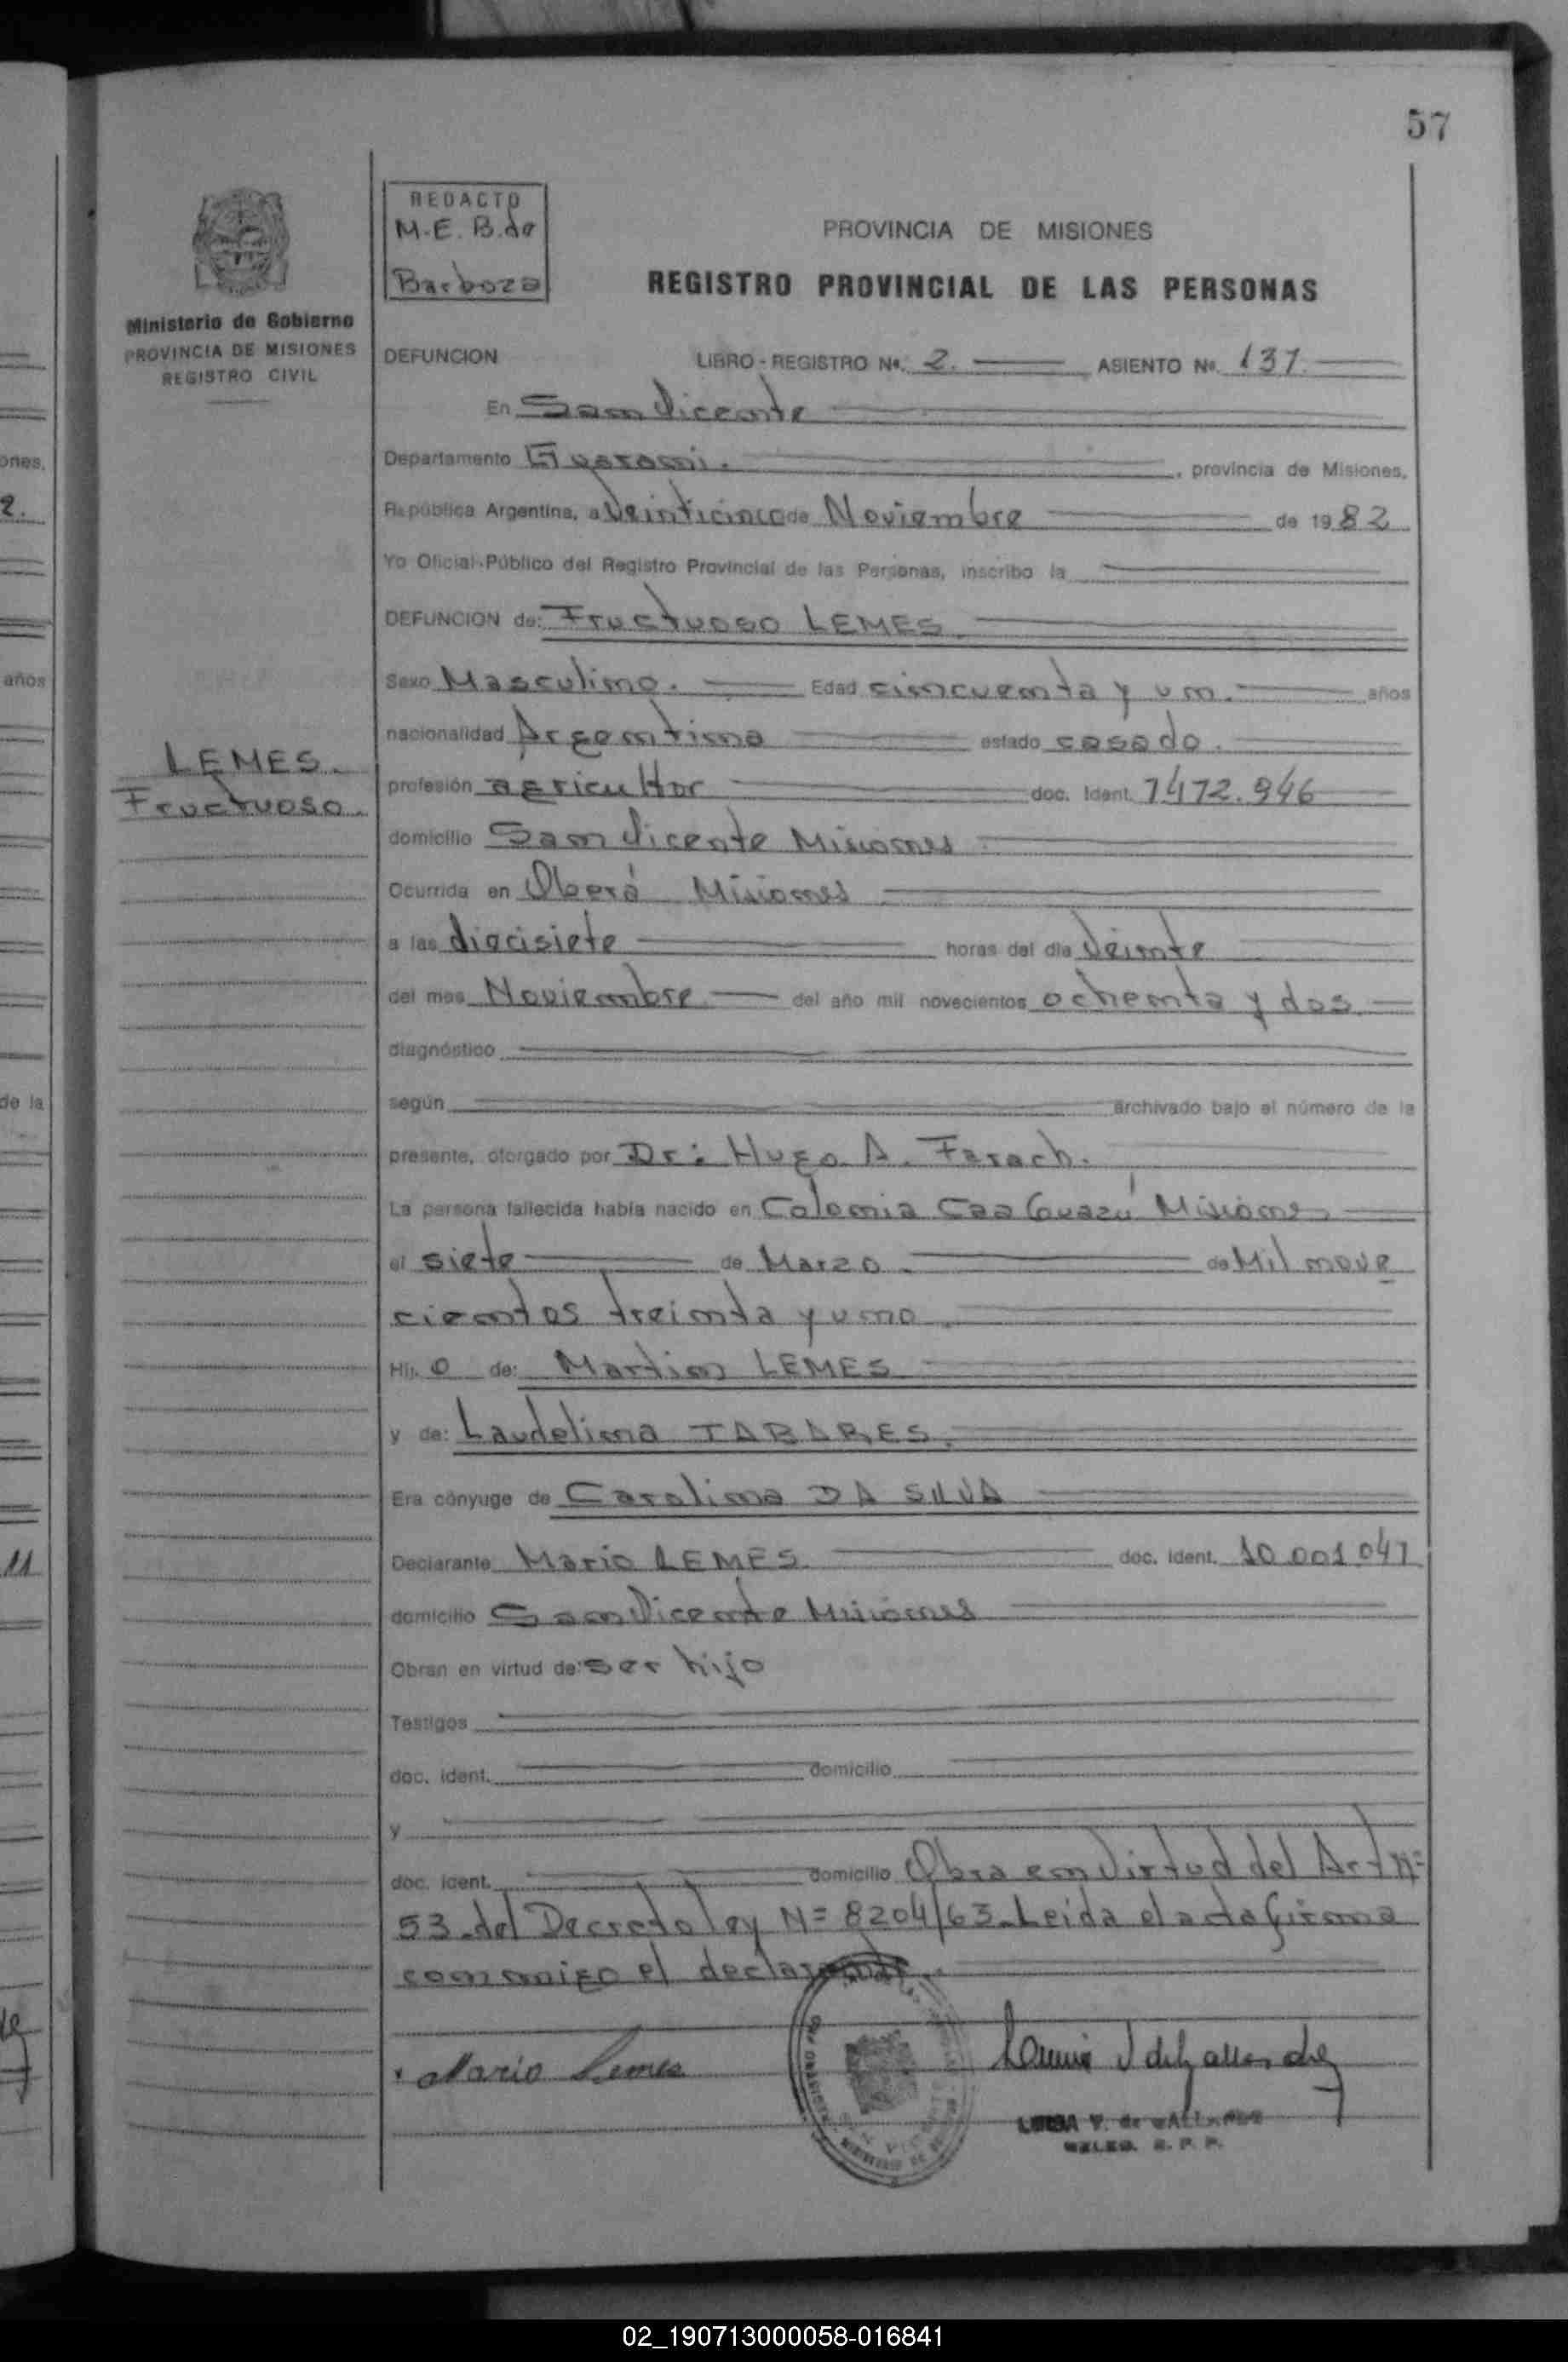 57
REDACTO
M.E.B.de
Barboza
PROVINCIA DE MISIONES
REGISTRO PROVINCIAL DE LAS PERSONAS
Ministerio de Gobierno
PROVINCIA DE MISIONES
REGISTRO CIVIL
DEFUNCION LIBRO-REGISTRO Nº. 2. ASIENTO Nº. 137.
En San Vicente
Departamento Guarani. , provincia de Misiones,
República Argentina, a Veinticinco de Noviembre de 1982
Yo Oficial Público del Registro Provincial de las Personas, inscribo la
DEFUNCION de: Fructuoso LEMES.
Sexo Masculino. Edad cincuenta y un. años
nacionalidad Argentina estado casado.
LEMES.
Fructuoso.
profesión agricultor doc. Ident. 7472.946
domicilio San Vicente Misiones
Ocurrida en Oberá Misiones
a las diecisiete horas del día Veinte
del mes Noviembre del año mil novecientos ochenta y dos
diagnóstico
según archivado bajo el número de la
presente, otorgado por Dr: Hugo A. Farach.
La persona fallecida había nacido en Colonia Caa Guazú Misiones
el siete de Marzo. de Mil nove
cientos treinta y uno.
Hij. o de: Martin LEMES
y de: Laudelina TABARES.
Era cónyuge de Carolina DA SILVA
Declarante Mario LEMES doc. ident. 10.001.047
domicilio San Vicente Misiones
Obran en virtud de: ser hijo
Testigos
doc. ident. domicilio
y
doc. ident. domicilio Obra en Virtud del Art Nº
53 del Decreto ley Nº 8204/63. Leida el acta firma
conmigo el declarante.
Mario Lemes
ones.
2.
años
de la
11
02_190713000058-016841